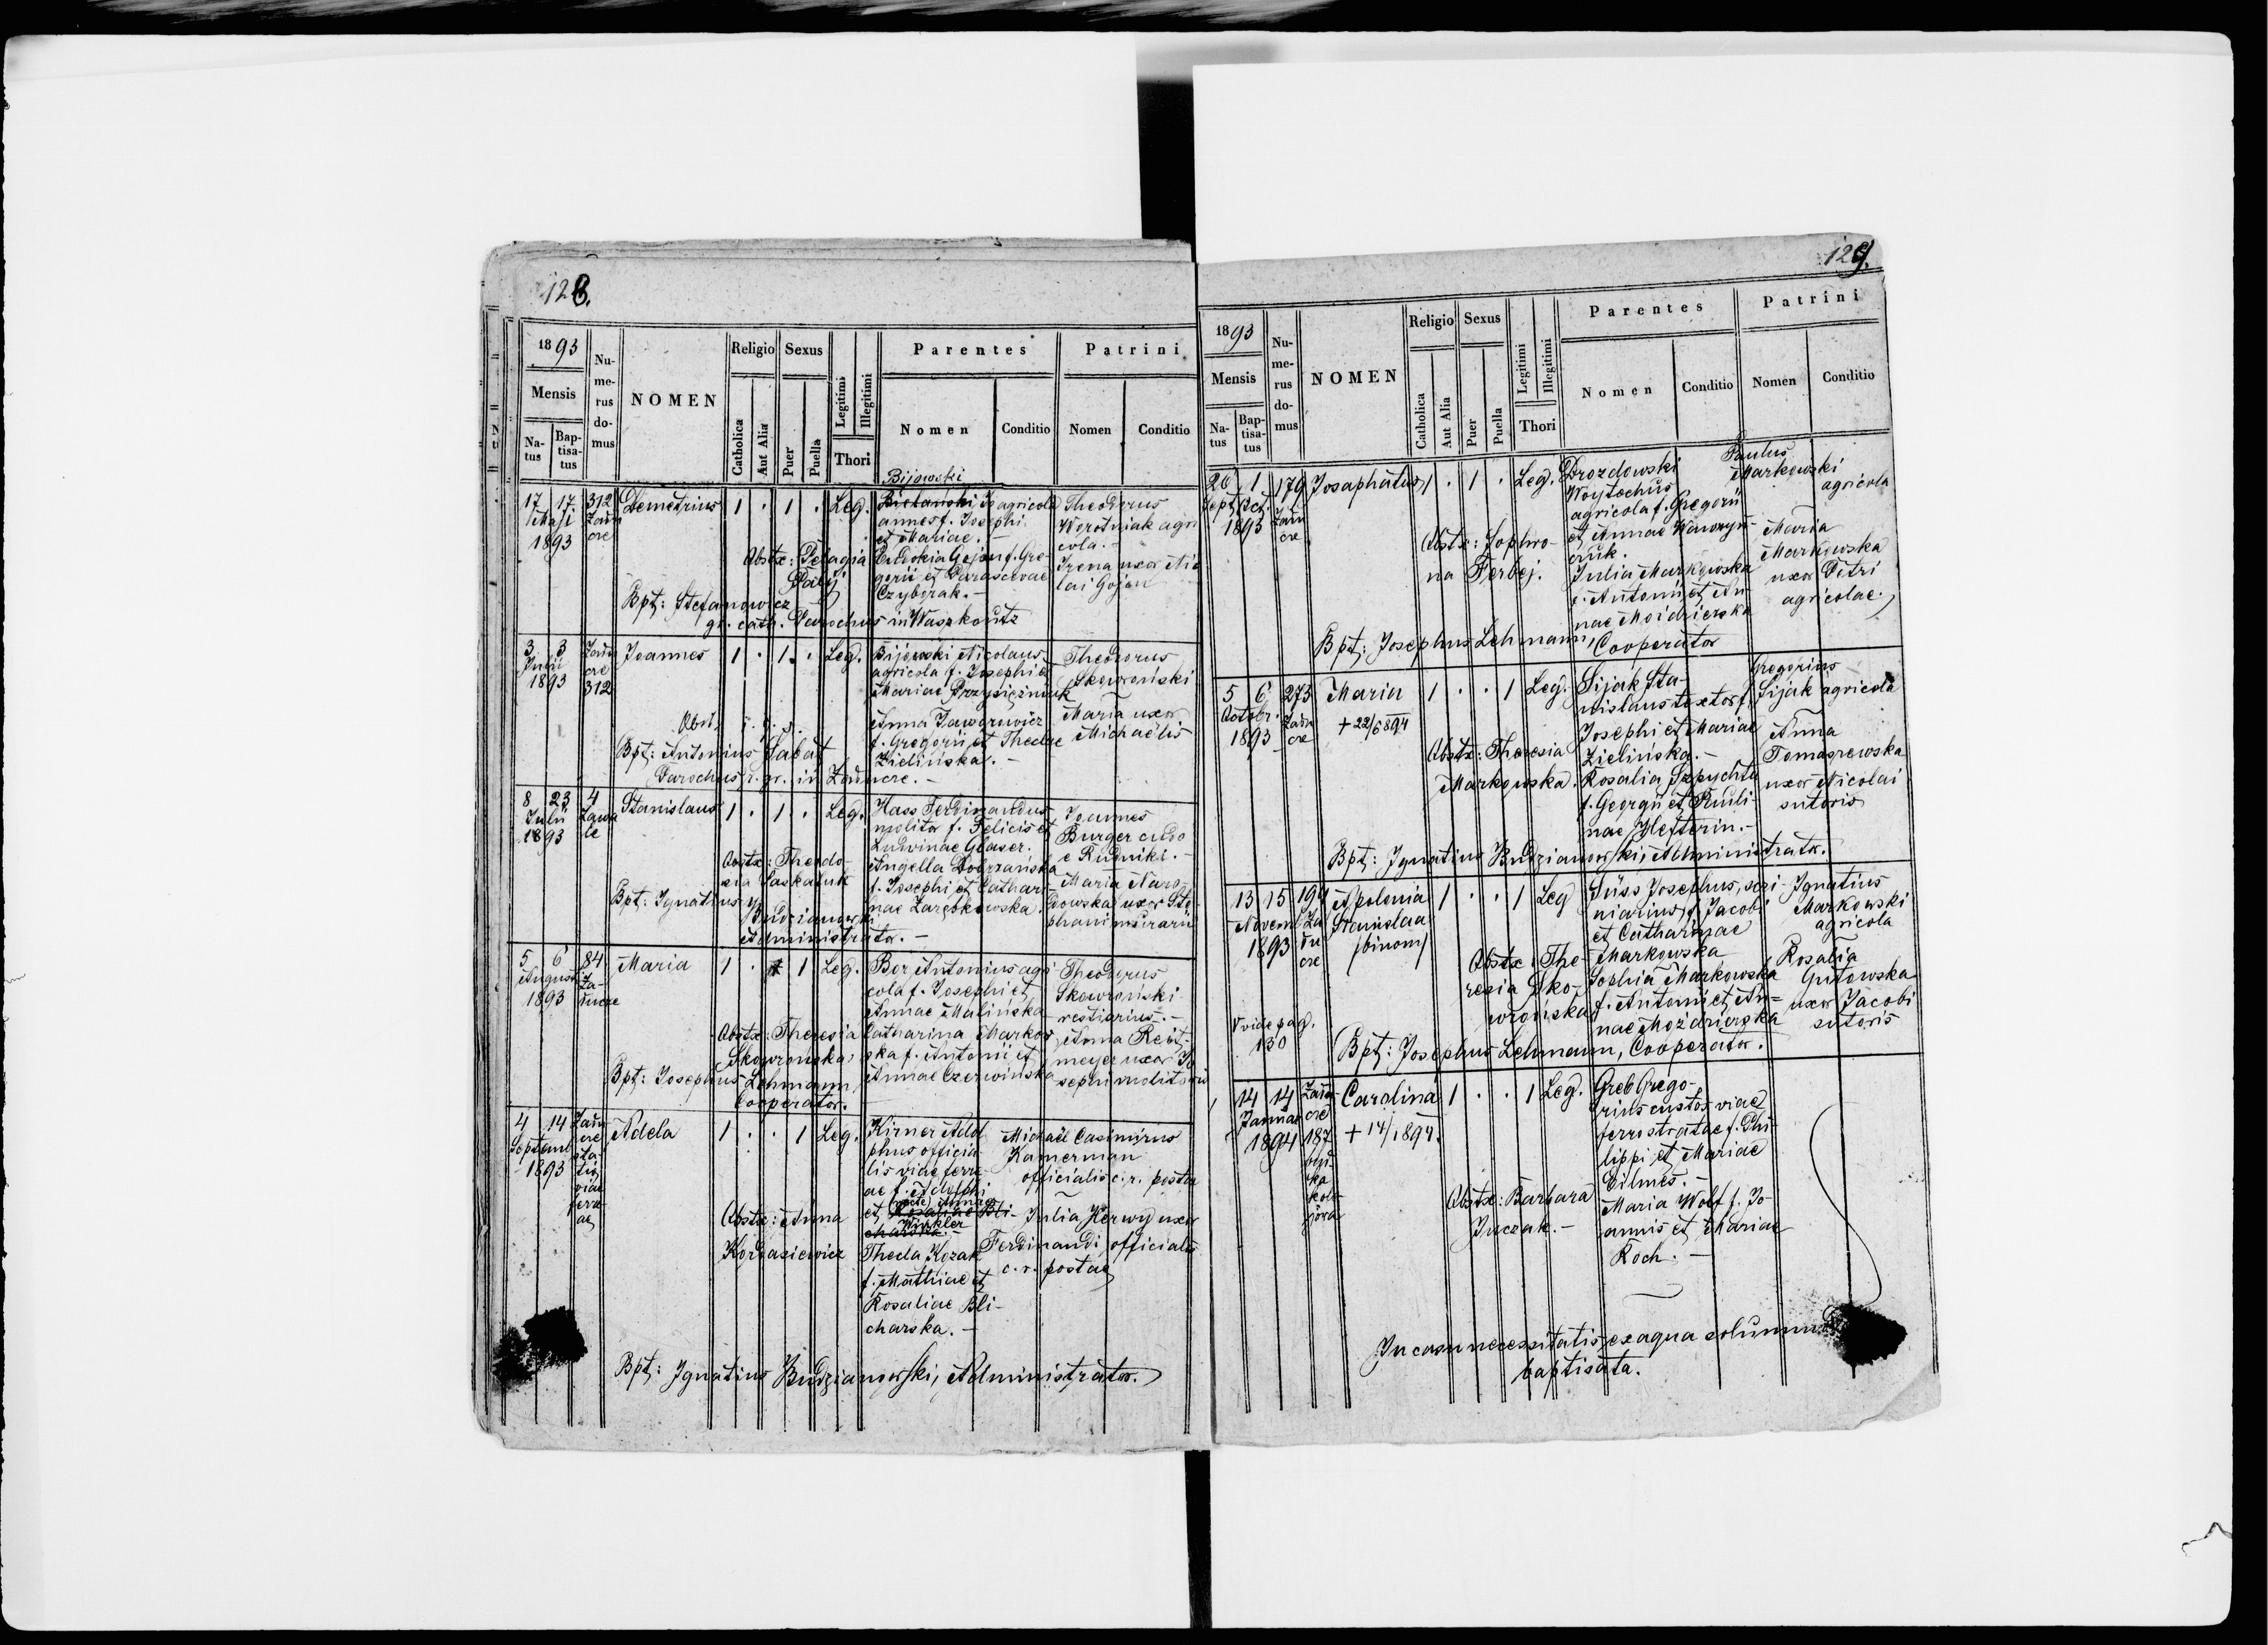 128.
1893
Mensis
Natus
Baptisatus
Numerus domus
NOMEN
Religio
Catholica
Aut Alia
Sexus
Puer
Puella
Legitimi
Illegitimi
Thori
Parentes
Nomen
Conditio
Patrini
Nomen
Conditio
17 17 312 Demetrius 1 . 1 . Leg.
Maji
1893
Bijowski
agricola
annes f. Josephi
et Mariae.
Eudokia Gojan f. Gre-
gorii et Parascevae
Czyborak.-
Theodorus
Worotniak agri
cola.-
Irena uxor Nico
lai Gojan
Obstx: Pelagia
Palij
Bpt: Stefanowicz
gr. cath. Parochus in Waszkoutz
3 3 Joannes 1 . 1 . Leg.
Junii
1893
312
Bijowski Nicolaus
agricola f. Josephi et
Mariae Przysiężniuk
Anna Jaworowicz
f. Gregorii et Theclae
Zielińska.-
Theodorus
Skowroński
Maria uxor
Michaëlis
Bpt: Antonius Sabat
Parochus r. gr. in Zaducre.-
8 23 4 Stanislaus 1 . 1 . Leg.
Julii
1893
Zawa
le
Hass Ferdinandus
molitor f. Felicis et
Ludwinae Glaser.
Angella Dobrzańska
f. Josephi et Cathari-
nae Zarębkowska.
Joannes
Burger cudo
e Rudniki.-
Maria Naro-
dowska uxor Ste-
phani murarii
Obstx: Theodo-
zia Paskaluk
Bpt: Ignatius
Budzianowski
Administrator.-
5 6 84 Maria 1 . 1 Leg.
August
1893
Bor Antonius agri
cola f. Josephi et
Annae Malińska
Catharina Markow
ska f. Antonii et
Annae Czerwińska
Theodorus
Skowroński
vestiarius.-
Anna Reit-
meyer uxor Jo
sephi molitoris
Obstx: Theresia
Skowrońska
Bpt: Josephus Lehmann
Cooperator.
4 14 Adela 1 . . 1 Leg.
Septemb
1893
sta-
tio
viae
ferre-
ae
Kirner Adol
phus officia-
lis viae ferre-
ae f. Adolphi
recte Annae
et Rosaliae Bli-
Winkler
charska.-
Thecla Kozak
f. Mathiae et
Rosaliae Bli-
charska.-
Michaël Casimirus
Kamerman
officialis c. r. postae
Julia Herwy uxor
Ferdinandi officialis
c. r. postae
Obstx: Anna
Kordasiewicz
Bpt: Ignatius Budzianowski, Administrator.
129.
1893
Mensis
Natus
Baptisatus
Numerus domus
NOMEN
Religio
Catholica
Aut Alia
Sexus
Puer
Puella
Legitimi
Illegitimi
Thori
Parentes
Nomen
Conditio
Patrini
Nomen
Conditio
26 1 179 Josaphatus 1 . 1 . Leg.
Sept Oct.
1893
Drozdowski
Woytechus
agricola f. Gregorii
et Annae Wawrzyń-
czuk.
Julia Markowska
f. Antonii et An-
nae Moidzierska
Paulus
Markowski
agricola
Maria
Markowska
uxor Petri
agricolae.
Obstx: Sophro-
na Ferbej.
Bpt: Josephus Lehmann, Cooperator
5 6 273 Maria 1 . . 1 Leg.
Octobr.
1893
+ 22/6 894
Sijak Sta-
nislaus textor f.
Josephi et Mariae
Zielińska.-
Rosalia Szpychta
f. Georgii et Pauli-
nae Hefterin.-
Gregorius
Sijak agricola
Anna
Tomaszewska
uxor Nicolai
sutoris
Obstx: Theresia
Markowska.
Bpt: Ignatius Budzianowski, Administrator.
13 15 194 Apolonia 1 . . 1 Leg
Novem
1893
Stanislaa
/binom/
Süss Josephus, scri-
niarius, f. Jacobi
et Catharinae
Markowska
Sophia Markowska
f. Antonii et An-
nae Moździerska
Ignatius
Markowski
agricola
Rosalia
Gutowska
uxor Jacobi
sutoris
Obstx: The-
resia Sko-
wrońska
V vide pag.
130
Bpt: Josephus Lehmann, Cooperator.
14 14 Carolina 1 . . 1 Leg.
Januar
1894
187
+ 14/1 894.
Greb Grego-
rius custos viae
ferrostratae f. Phi-
lippi et Mariae
Eilmes.-
Maria Wolf f. Jo-
annis et Mariae
Koch.-
Obstx: Barbara
Juczak.-
In casu necessitatis ex aqua
baptisata.